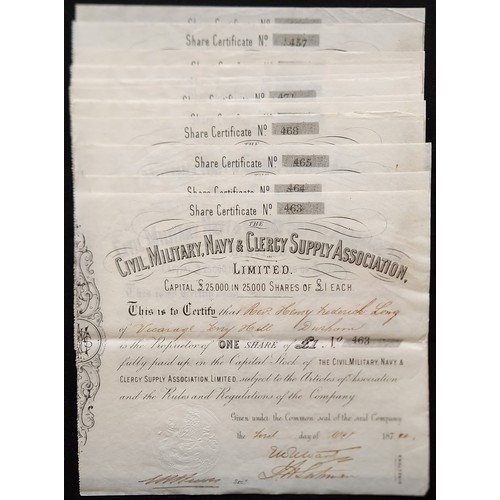 Share Certificate Nº
Share Certificate Nº 457
Share Certificate Nº 471
Share Certificate Nº 468
THE
Share Certificate Nº 465
Share Certificate Nº 464
Share Certificate Nº 463
THE
CIVIL, MILITARY, NAVY & CLERGY SUPPLY ASSOCIATION,
LIMITED.
CAPITAL £25,000, IN 25000 SHARES OF £1 EACH
This is to Certify that Revd Henry Frederick Long
of Vicarage Hill Durham
is the Proprietor of ONE SHARE of £1. Nº 463
fully paid up, in the Capital Stock of THE CIVIL, MILITARY, NAVY &
CLERGY SUPPLY ASSOCIATION, LIMITED, subject to the Articles of Association
and the Rules and Regulations of the Company
Given under the Common seal of the said Company
the First day of 187
DIRECTORS
Secy.